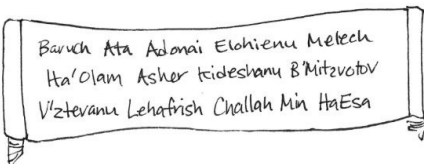 Baruch Ata Adonai Elohienu Melech
Ha'Olam Asher Kideshanu B'Mitzvotov
V'ztevanu Lehafrish Challah Min HaEsa